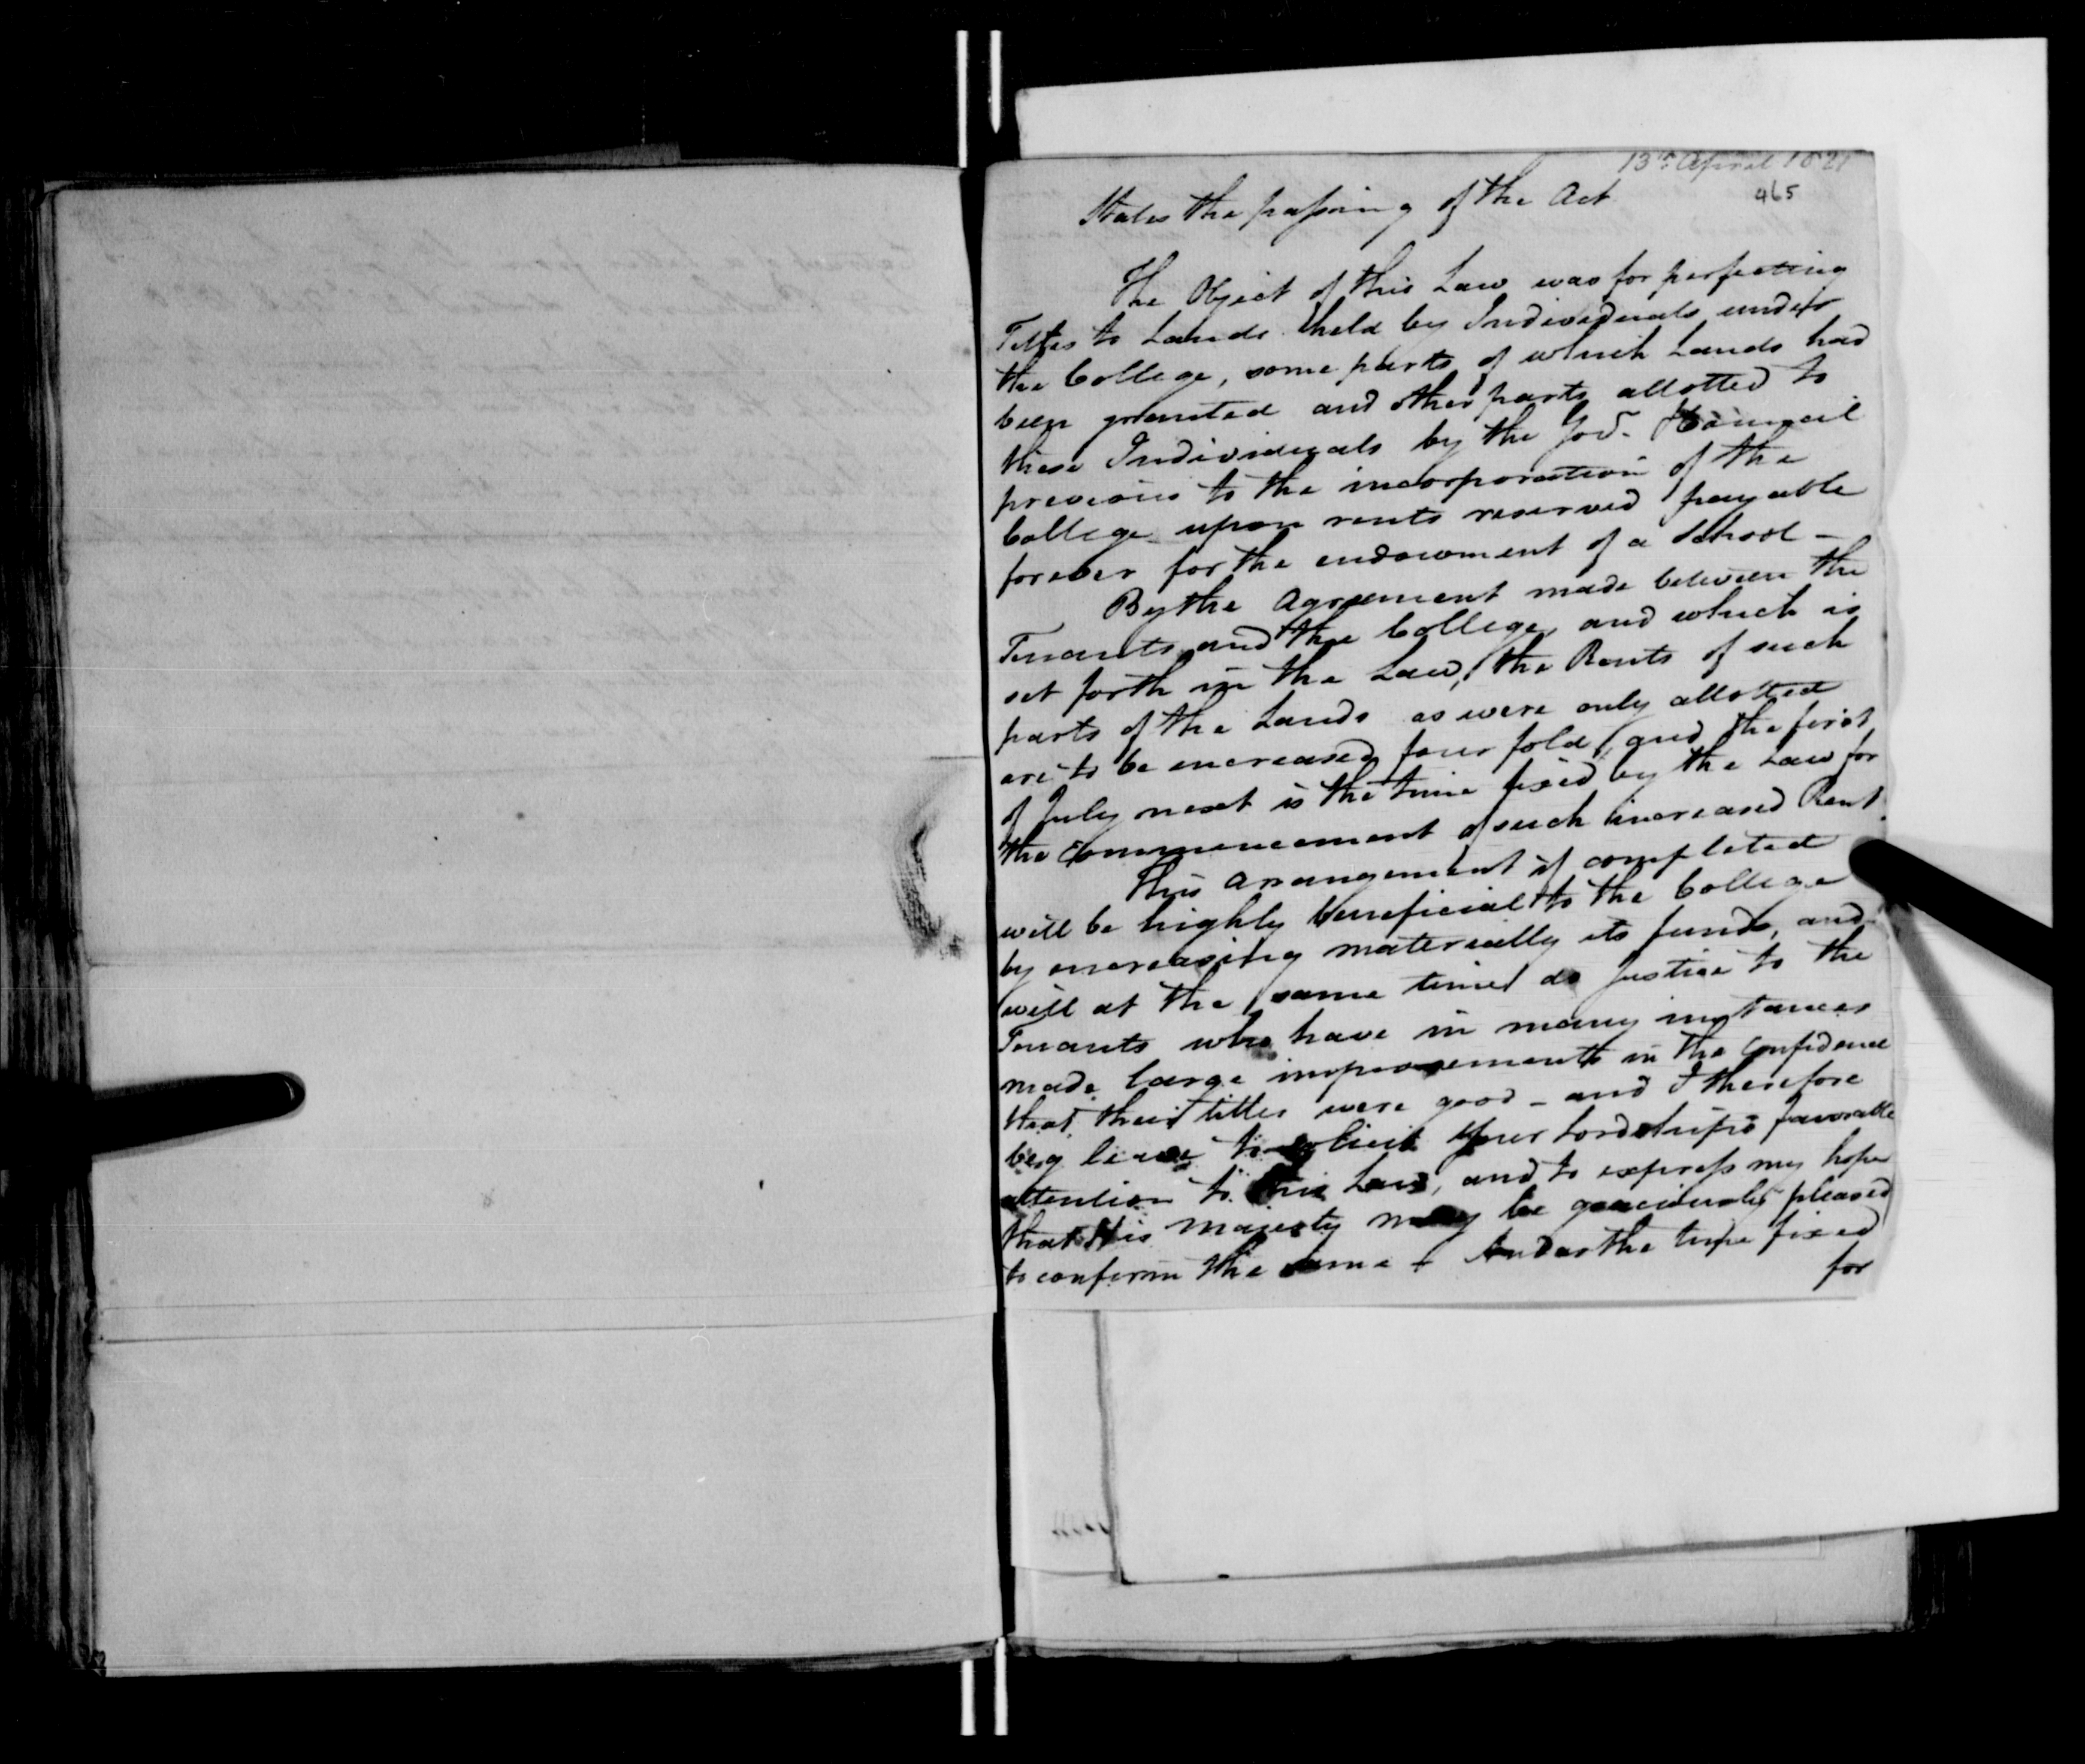 13th April 1821
465
States the passing of the Act
The Object of this Law was for perfecting
Titles to Lands held by Individuals under
the College, some parts of which Lands had
been granted and other parts allotted to
these Individuals by the Govr. & Council
previous to the incorporation of the
College upon rents reserved payable
forever for the endowment of a School -
By the Agreement made between the
Tenants and the College, and which is
set forth in the Law, the Rents of such
parts of the Lands as were only allotted
are to be encreased four fold, and the first
of July next is the time fixed by the Law for
the Commencement of such increased Rent.
This Arrangement if completed
will be highly beneficial to the College
by encreasing materially its funds, and
will at the same time do justice to the
Tenants who have in many instances
made large improvements in the confidence
that their titles were good - and I therefore
beg leave to solicit Your Lordship's favorable
attention to this Law, and to express my hope
that His Majesty may be graciously pleased
to confirm the same - And as the time fixed
for